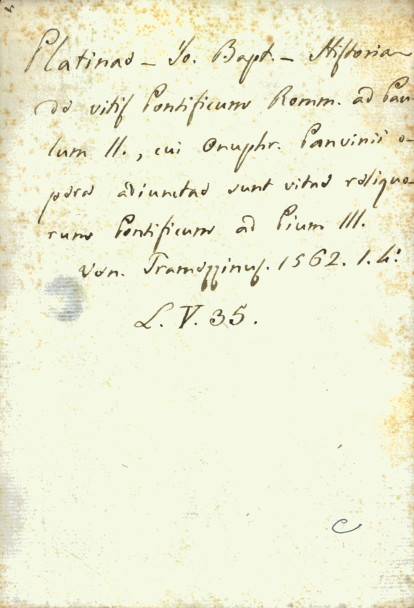 Platinae – Jo. Bapt. – Historia
de vitis Pontificum Romm. ad Pau-
lum II., cui Onuphr. Panvinii o-
pera adiunctae sunt vitae reliquo-
rum Pontificum ad Pium IIII.
Ven. Tramezzinus. 1562. 1. 4°
L. V. 35.
C